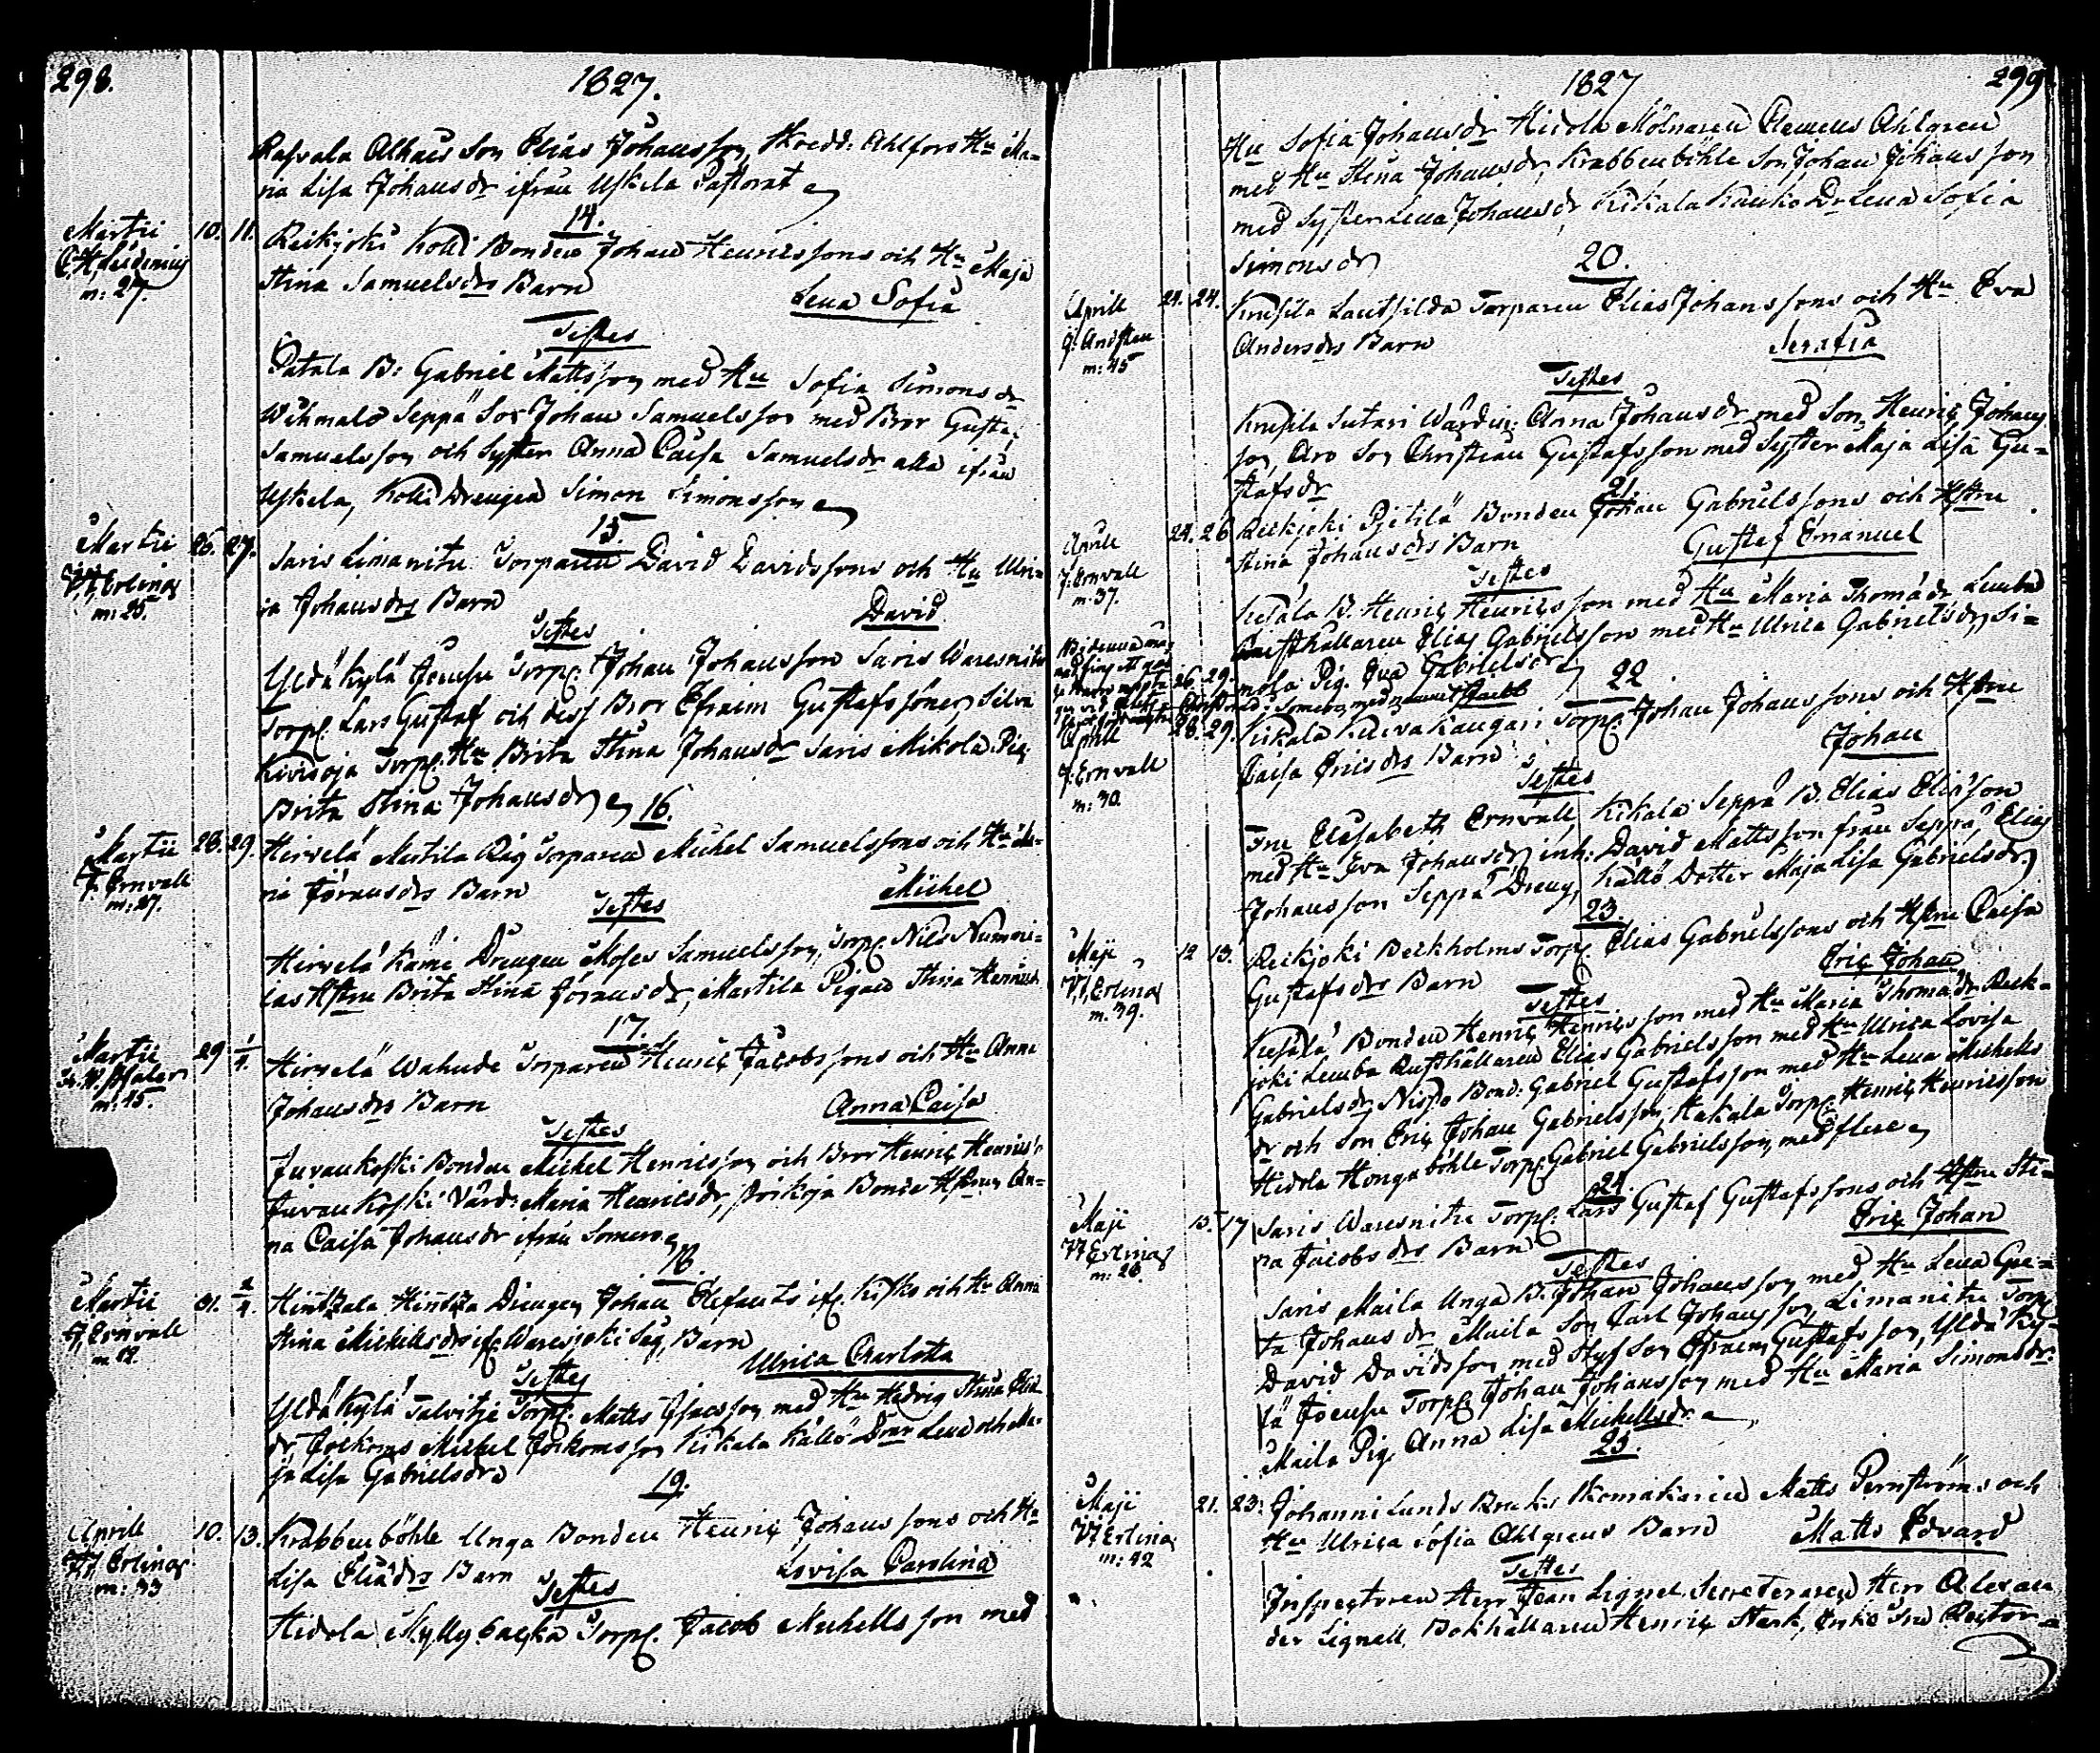 298.
1827.
Rasvala Alhais Son Elias Johansson, Skredd: Ahlfors Hu Ma=
ria Lisa Johansdr ifrån Uskela Pastorat
14.
Martii 10. 11. Rekijoki Kolli Bonden Johan Henricssons och Hu Maja
m: 27.
Stina Samuelsdrs Barn Lena Sofia
Testes
Patala B: Gabriel Mattsson med Hu Sofia Simonsdr
Seppä Son Johan Samuelsson med Bror Gusta:
Samuelsson och Syster Anna Caisa Samuelsdr alla ifrån
Uskela, Kolli Drengen Simon Simonsson
15.
Martii 26. 27. Saris Limanitu Torparen David Davidssons och Hu Ulri=
Erling
m: 25.
ca Johansdrs Barn David
Testes
Yldäkylä Jouhu Torp. Johan Johansson Saris Waresnitu
Torp. Lars Gustaf och dess Bror Efraim Gustafssöner, Silva
Kivisoja Torp. Hu Brita Stina Johansdr Saris Mikola Pig.
Brita Stina Johansdr
16.
Martii 28. 29. Hirvelä Martila Räg Torparen Michel Samuelssons och Hu Ma=
J. Ernvall
m: 27.
ria Göransdrs Barn Michel
Testes
Hirvelä Kämi Drengen Moses Samuelsson, Torp. Nils Numeri=
las Hstru Brita Stina Göransdr, Martila Pigan Stina Henricsdr
17.
Martii 29 1/4. Hirvelä Wahude Torparen Henric Jacobssons och Hu Anna
m: 45.
Johansdrs Barn Anna Caisa
Testes
Juvankoski Bonden Michel Henricsson och Bror Henric Henricss.
Juvankoski Värd: Maria Henricsdr, Bonde Hstrun An=
na Caisa Johansdr ifrån Somero
18.
Martii 31. 2/4. Hintzala Hintza Drengen Johan Elefants if. Kisko och Hu Anna
J. Ernvall
Stina Michelsdrs if. Barn
Ulrica Charlotta
Testes
Yldäkylä Talvitje Torp. Matts Isacsson med Hu Hedvig Stina Elia
dr, Jockoms Michel Jockomsson Kikala Källö Döttr Lena och Ma=
ja Lisa Gabrielsdr
19.
Aprill 10. 13. Krabbenböhle Unga Bonden Henric Johanssons och Hu
Erling
m: 33
Lisa Eliädrs Barn Lovisa Carolina
Testes
Hidola Myllybacka Torp. Jacob Michellsson med
1827
299
Hu Sofia Johansdr Hidola Mölnaren Clemens Ahlgren
med Hu Stina Johansdr, Krabbenböhle Son Johan Johansson
med Syster Lena Johansdr Kikala Dr Lena Sofia
Simonsdr
20.
Aprill 21. 24. Lautsilda Torparen Elias Johanssons och Hu Eva
m: 45
Andersdrs Barn Serafia
Testes
Sutari Wärdin: Anna Johansdr med Son, Henric Johans
son Aro Son Christian Gustafsson med Syster Maja Lisa Gu=
stafsdr
21.
Aprill 24. 26 Rekijoki Pjetilä Bonden Johan Gabrielssons och Hstru
J. Ernvall
m: 37.
Stina Johansdrs Barn Gustaf Emanuel
Testes
B. Henric Henricsson med Hu Maria Thomädr Lemba
Rusthållaren Elias Gabrielsson med Hu Ulrica Gabrielsdr, Si=
mola Pig. Eva Gabrielsdr
26. 29.
22
Aprill 28. 29. Kikala Kaugari Torp. Johan Johanssons och Hstru
J. Ernvall
m: 30.
Caisa Ericsdrs Barn Johan
Testes
Fru Elisabeth Ernvall, Kikala Seppä B. Elias Eliäson
med Hu Eva Johansdr, inh: David Mattsson från Seppä, Elias
Johansson Seppä Dreng, Källö Dotter Maja Lisa Gabrielsdr
23.
Maji 12 13. Rekijoki Beckholms Torp. Elias Gabrielssons och Hstru Caisa
Erling
m. 39.
Gustafsdrs Barn Eric Johan
Testes
Bonden Henric Henricsson med Hu Maria Thomädr Reck=
joki Lemba Rusthållaren Elias Gabrielsson med Hu Ulrica Lovisa
Gabrielsdr, Bond: Gabriel Gustafsson med Hu Lena Michells
dr och Son Eric Johan Gabrielsson, Hakala Torp. Henric Henricsson
Hidola Hongaböhle Torp. Gabriel Gabrielsson, med flere
24.
Maji 15. 17 Saris Waresnitu Torp. Lars Gustaf Gustafssons och Hstru Sti=
Erling
m: 26.
na Jacobsdrs Barn Eric Johan
Testes
Saris Maila Unga B. Johan Johansson med Hu Lena Gre=
ta Johansdr Maila Son Carl Johansson Limanitu Torp.
David Davidsson med Styfson Efraim Gustafsson, Yldä Ky=
lä Jouhu Torp. Johan Johansson med Hu Maria Simonsdr.
Maila Pig. Anna Lisa Michellsdr
25.
Maji 21. 23. Johannilunds Bruks Skomakaren Matts Pernströms och
Erling
m: 42
Hu Ulrica Sofia Ahlgrens Barn Matts Edvard
Testes
Inspectoren Herr Jean Lignel, Secreteraren Herr Alexan
der Lignell, Bokhållaren Henric Stark, Enke Fru Rector